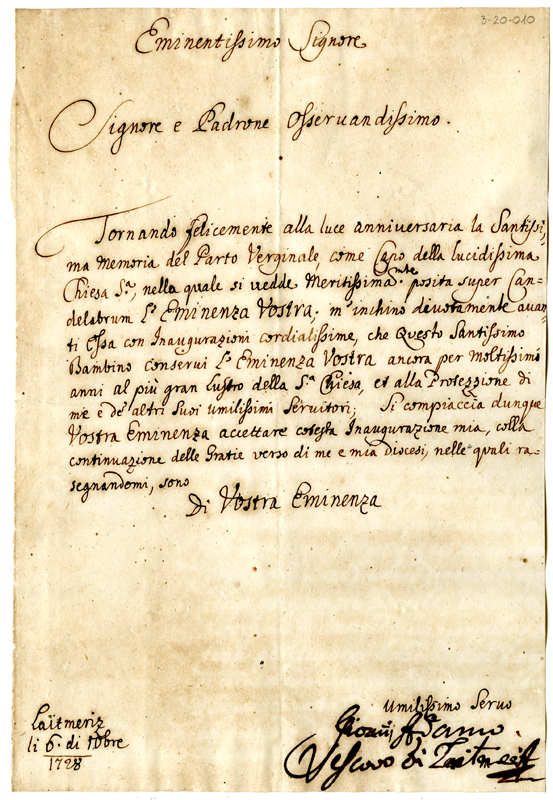 3-20-010
Eminentissimo Signore
Signore e Padrone Osseruandissimo.
Tornando felicemente alla luce anniversaria la Santissi,
ma Memoria del Parto Verginale, come Capo della lucidissima
Chiesa S.ª, nella quale si vedde Meritissima.mte posita super Can=
delabrum L'Eminenza Vostra; m'inchino devotamente auan
ti Essa con Inaugurazioni cordialissime, che Questo Santissimo
Bambino conserui L'Eminenza Vostra ancora per moltissimi
anni al più gran lustro della S.ª Chiesa, et alla Protezzione di
me e de' altri Suoi umilissimi Seruitori; Si compiaccia dunque
Vostra Eminenza accettare cotesta Inaugurazione mia, colla
continuazione delle Gratie verso di me e mia diocesi, nelle quali ra=
segnandomi, sono
Di Vostra Eminenza
Laitmeriz
li 6. di Xbre
1728
Umilissimo Seruo
Giovañi Adamo
Vescovo di Laitmeriz